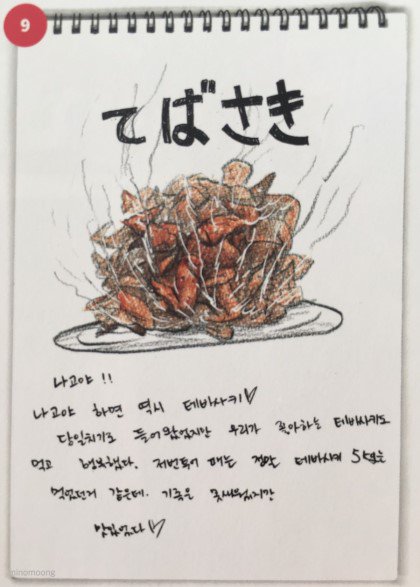 9
てばさき
나고야 !!
나고야 하면 역시 테바사키♡
당일치기로 들어왔었지만 우리가 좋아하는 테바사키도
먹고 행복했다. 저번 때는 정말 테바사키 5kg는
먹었던거 같은데. 기록은 못세웠지만
맛있었다♡
ninomoong